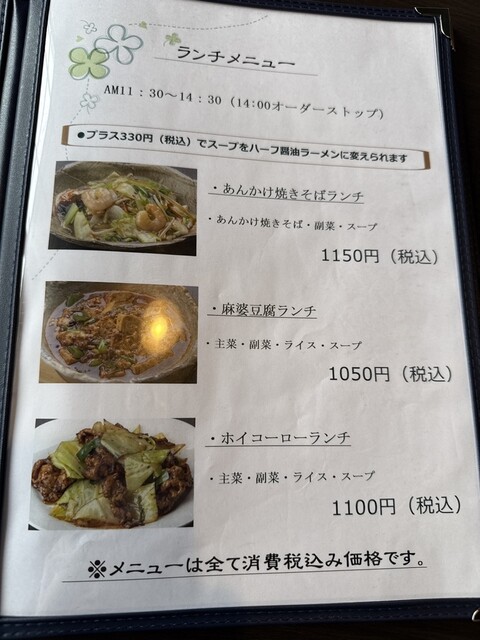 ランチメニュー
AM11：30～14：30（14:00オーダーストップ）
●プラス330円（税込）でスープをハーフ醤油ラーメンに変えられます
・あんかけ焼きそばランチ
・あんかけ焼きそば・副菜・スープ
1150円（税込）
・麻婆豆腐ランチ
・主菜・副菜・ライス・スープ
1050円（税込）
・ホイコーローランチ
・主菜・副菜・ライス・スープ
1100円（税込）
※メニューは全て消費税込み価格です。